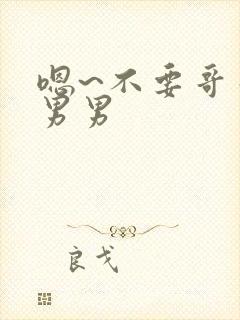 嗯~不要哥
男男
良戈